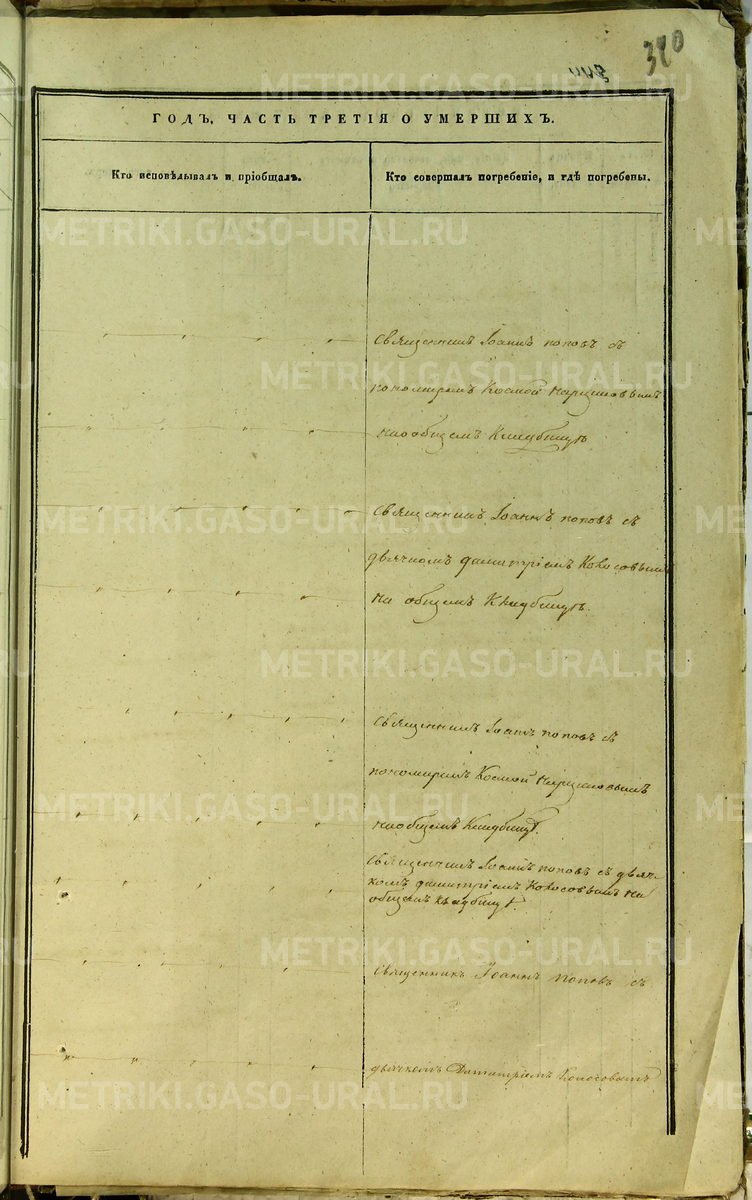 320
ГОДЪ, ЧАСТЬ ТРЕТІЯ О УМЕРШИХЪ.
Кто исповѣдывалъ и пріобщалъ.
Кто совершалъ погребеніе, и гдѣ погребены.
Священникъ Іоаннъ поповъ съ
пономаремъ Космой
на общемъ Кладбищѣ
Священникъ Іоаннъ поповъ съ
дьячкомъ димитріемъ Колосовымъ
на общемъ Кладбищѣ.
Священникъ Іоаннъ поповъ съ
пономаремъ Космой
на общемъ Кладбищѣ.
Священникъ Іоаннъ поповъ съ дьяч-
комъ димитріемъ Колосовымъ на
общемъ кладбищѣ.
Священникъ Іоаннъ поповъ съ
дьячкомъ Димитріемъ Колосовымъ
METRIKI.GASO-URAL.RU